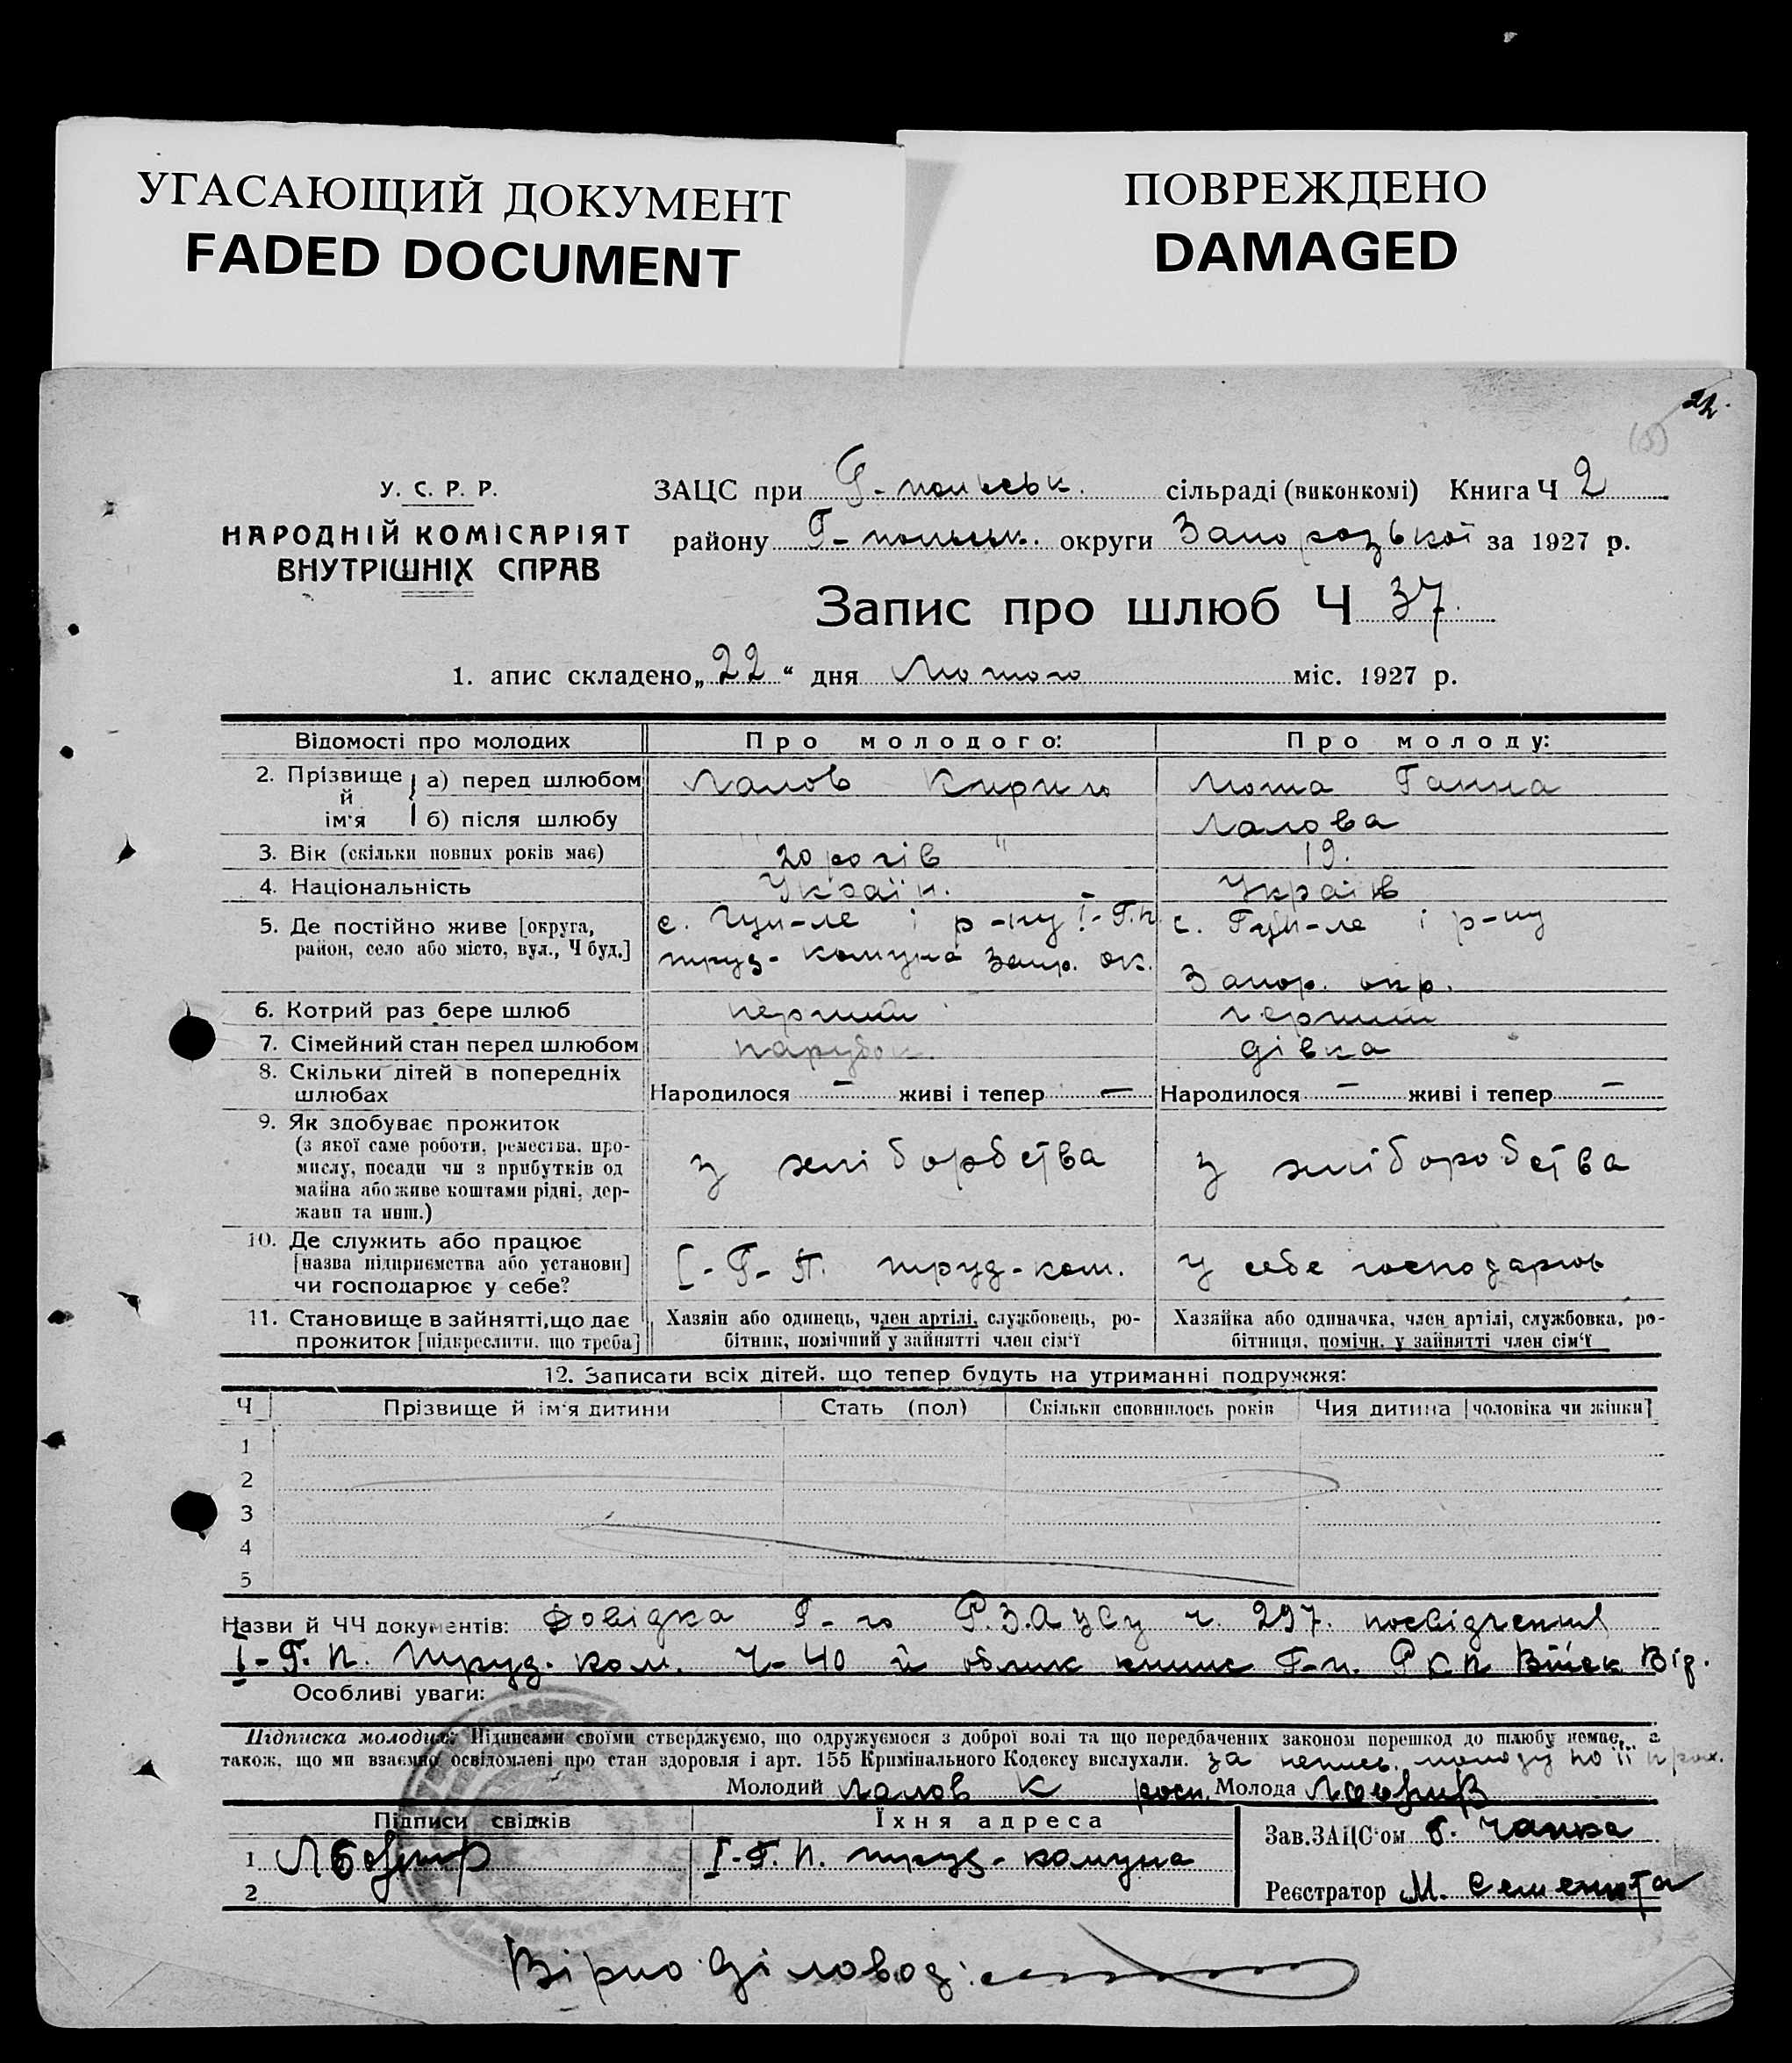 УГАСАЮЩИЙ ДОКУМЕНТ
FADED DOCUMENT
ПОВРЕЖДЕНО
DAMAGED
У. С. Р. Р.
НАРОДНІЙ КОМІСАРІЯТ
ВНУТРІШНІХ СПРАВ
ЗАЦС при Г-польськ. сільраді (виконкомі) Книга Ч 2
району Г-польськ. округи Запорозької за 1927 р.
Запис про шлюб Ч 37.
1. апис складено „22“ дня Лютого міс. 1927 р.
Відомості про молодих Про молодого: Про молоду:
2. Прізвище й ім'я а) перед шлюбом Лалов Кирило Люта Ганна
б) після шлюбу " " Лалова
3. Вік (скільки повних років має) 20 років 19.
4. Національність Україн. Україн
5. Де постійно живе [округа, район, село або місто, вул., Ч буд.]
с. Гул-ле і р-ну І-Г.П. с. Гул-ле і р-ну
труд-комуна Запр. ок. Запор. окр.
6. Котрий раз бере шлюб перший перший
7. Сімейний стан перед шлюбом парубок. дівка
8. Скільки дітей в попередніх шлюбах Народилося — живі і тепер — Народилося — живі і тепер —
9. Як здобуває прожиток
(з якої саме роботи, ремества, про-
мислу, посади чи з прибутків од
майна або живе коштами рідні, дер-
жави та инш.)
з хліборбства з хліборобства
10. Де служить або працює
[назва підприємства або установи]
чи господарює у себе?
І-Г-П. труд-ком. У себе господарює
11. Становище в зайнятті, що дає
прожиток [підкреслити, що треба]
Хазяїн або одинець, член артілі, службовець, ро-
бітник, помічний у зайнятті член сім'ї
Хазяйка або одиначка, член артілі, службовка, ро-
бітниця, помічн. у зайнятті член сім'ї
12. Записати всіх дітей, що тепер будуть на утриманні подружжя:
Ч Прізвище й ім'я дитини Стать (пол) Скільки сповнилось років Чия дитина [чоловіка чи жінки]
1
2
3
4
5
Назви й ЧЧ документів: Довідка Р-го Р.ЗАЦСу ч. 297. посвідчення
І-Г.П. Труд. ком. Ч-40 й облик книж Г-п. РКП Війск Від.
Особливі уваги:
Підписка молодих: Підписами своїми стверджуємо, що одружуємося з доброї волі та що передбачених законом перешкод до шлюбу немає, а
також, що ми взаємно освідомлені про стан здоровля і арт. 155 Кримінального Кодексу вислухали. за непись. молоду по її прох.
Молодий Лалов К розп. Молода
Підписи свідків Їхня адреса
1 І-Г.П. труд-комуна
2
Зав. ЗАЦС'ом Г. Чапка
Реєстратор М. Семенюта
Вірно: Діловод: